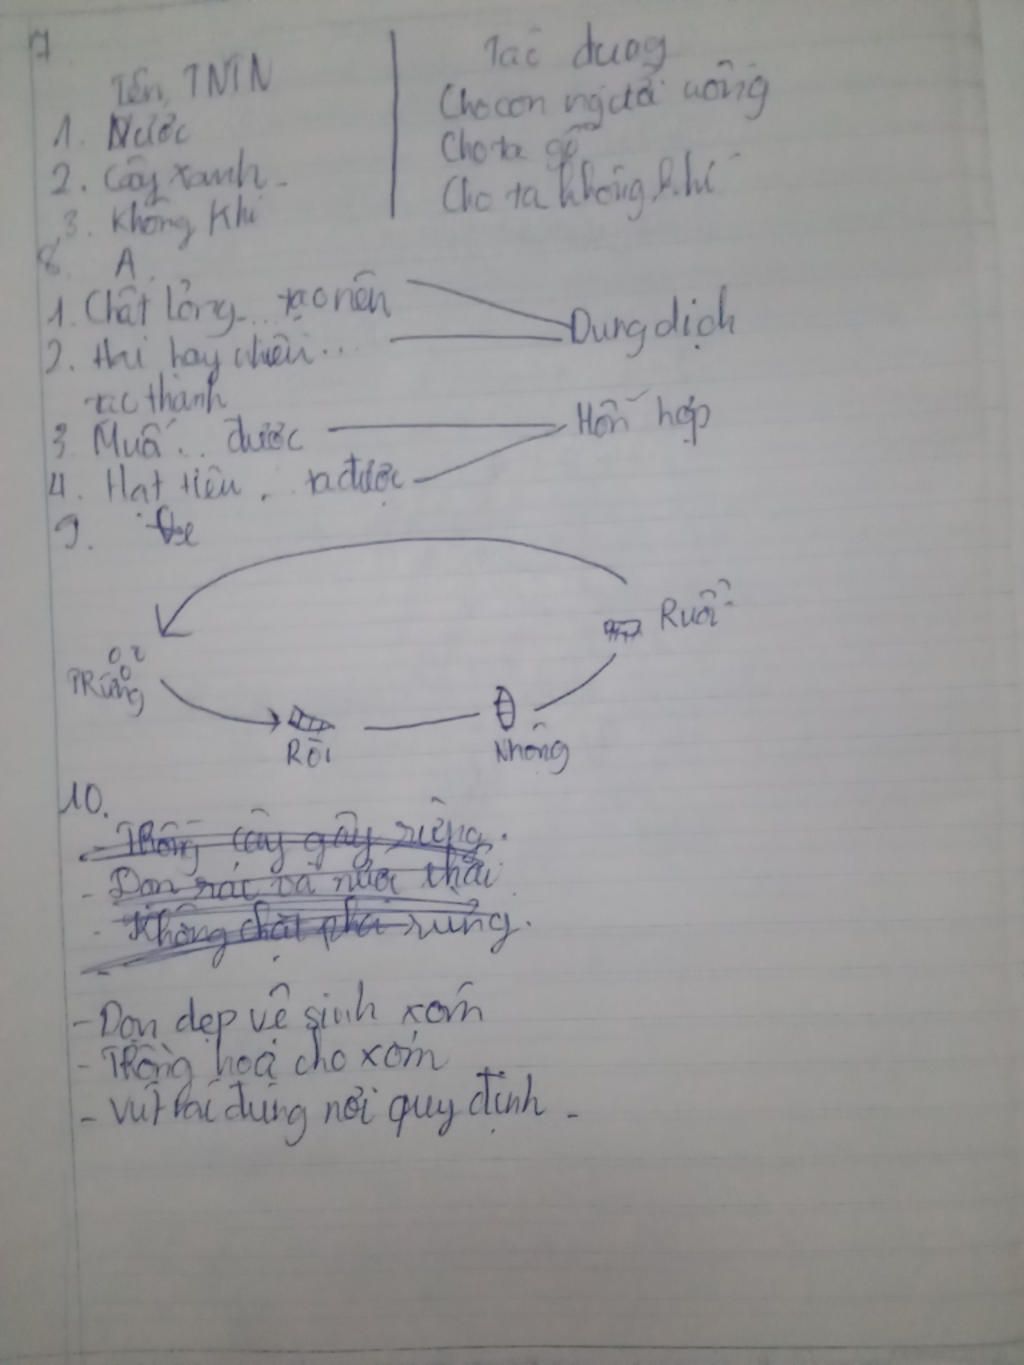 7
Tên TNTN | Tác dụng
1. Nước | Cho con người uống
2. Cây xanh | Cho ta gỗ
3. Không khí | Cho ta không khí
8. A
1. Chất lỏng... tạo nên
Dung dịch
2. thì hay nhiều...
tạc thành
Hỗn hợp
3. Muấ... được
4. Hạt tiêu... ra được
9.
Ruồi
Trứng
Rồi
Nhộng
10.
- Trồng cây gây rừng.
- Dọn rác và nước thải
- Không chặt phá rừng.
- Dọn dẹp vê sinh xóm
- Trồng hoạ cho xóm
- Vứt rác đúng nơi quy định